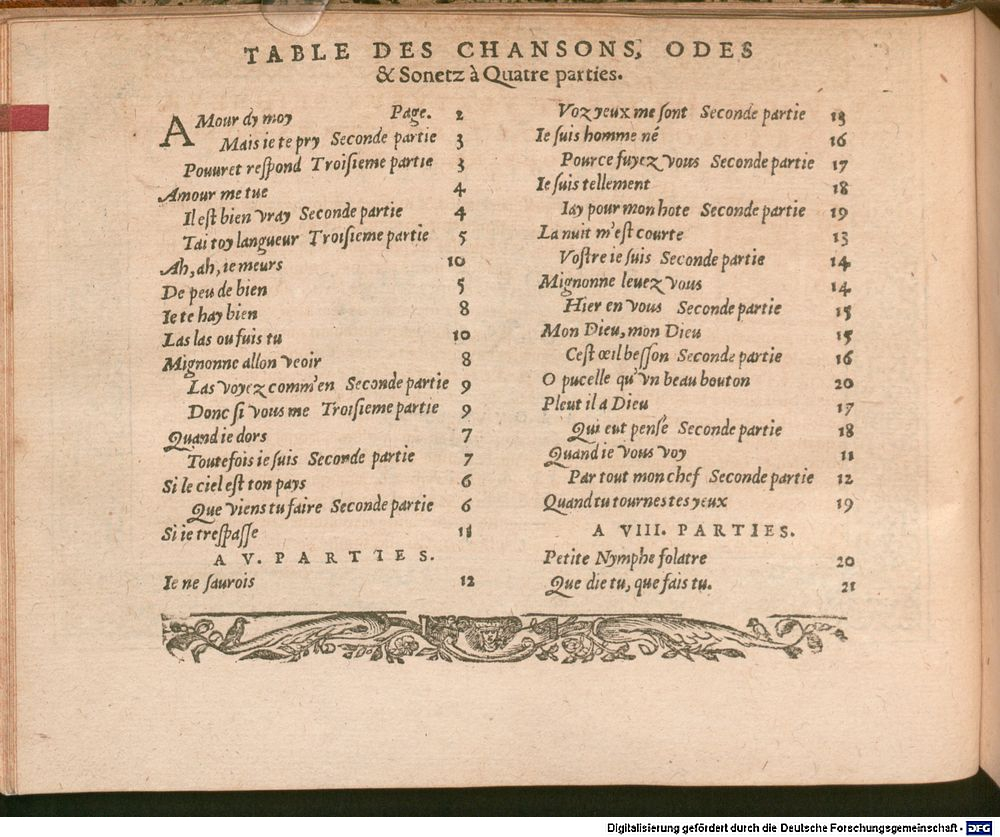 TABLE DES CHANSONS, ODES
& Sonetz à Quatre parties.
AMour dy moy Page. 2
Mais ie te pry Seconde partie 3
Pouuret respond Troisieme partie 3
Amour me tue 4
Il est bien vray Seconde partie 4
Tai toy langueur Troisieme partie 5
Ah, ah, ie meurs 10
De peu de bien 5
Ie te hay bien 8
Las las ou fuis tu 10
Mignonne allon veoir 8
Las voyez comm'en Seconde partie 9
Donc si vous me Troisieme partie 9
Quand ie dors 7
Toutefois ie suis Seconde partie 7
Si le ciel est ton pays 6
Que viens tu faire Seconde partie 6
Si ie trespasse 11
A V. PARTIES.
Ie ne saurois 12
Voz yeux me sont Seconde partie 13
Ie suis homme né 16
Pource fuyez vous Seconde partie 17
Ie suis tellement 18
Iay pour mon hote Seconde partie 19
La nuit m'est courte 13
Vostre ie suis Seconde partie 14
Mignonne leuez vous 14
Hier en vous Seconde partie 15
Mon Dieu, mon Dieu 15
Cest œil besson Seconde partie 16
O pucelle qu'vn beau bouton 20
Pleut il a Dieu 17
Qui eut pensé Seconde partie 18
Quand ie vous voy 11
Par tout mon chef Seconde partie 12
Quand tu tournes tes yeux 19
A VIII. PARTIES.
Petite Nymphe folatre 20
Que die tu, que fais tu. 21
Digitalisierung gefördert durch die Deutsche Forschungsgemeinschaft - DFG